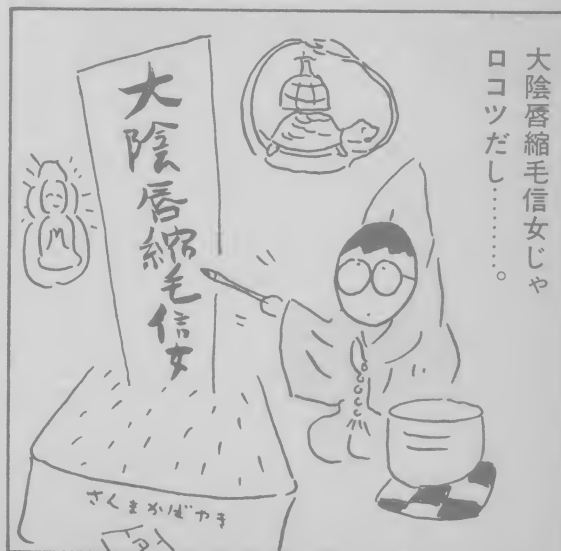 大陰唇縮毛信女じゃ
ロコツだし………。
大陰唇縮毛信女
さんまかばやき